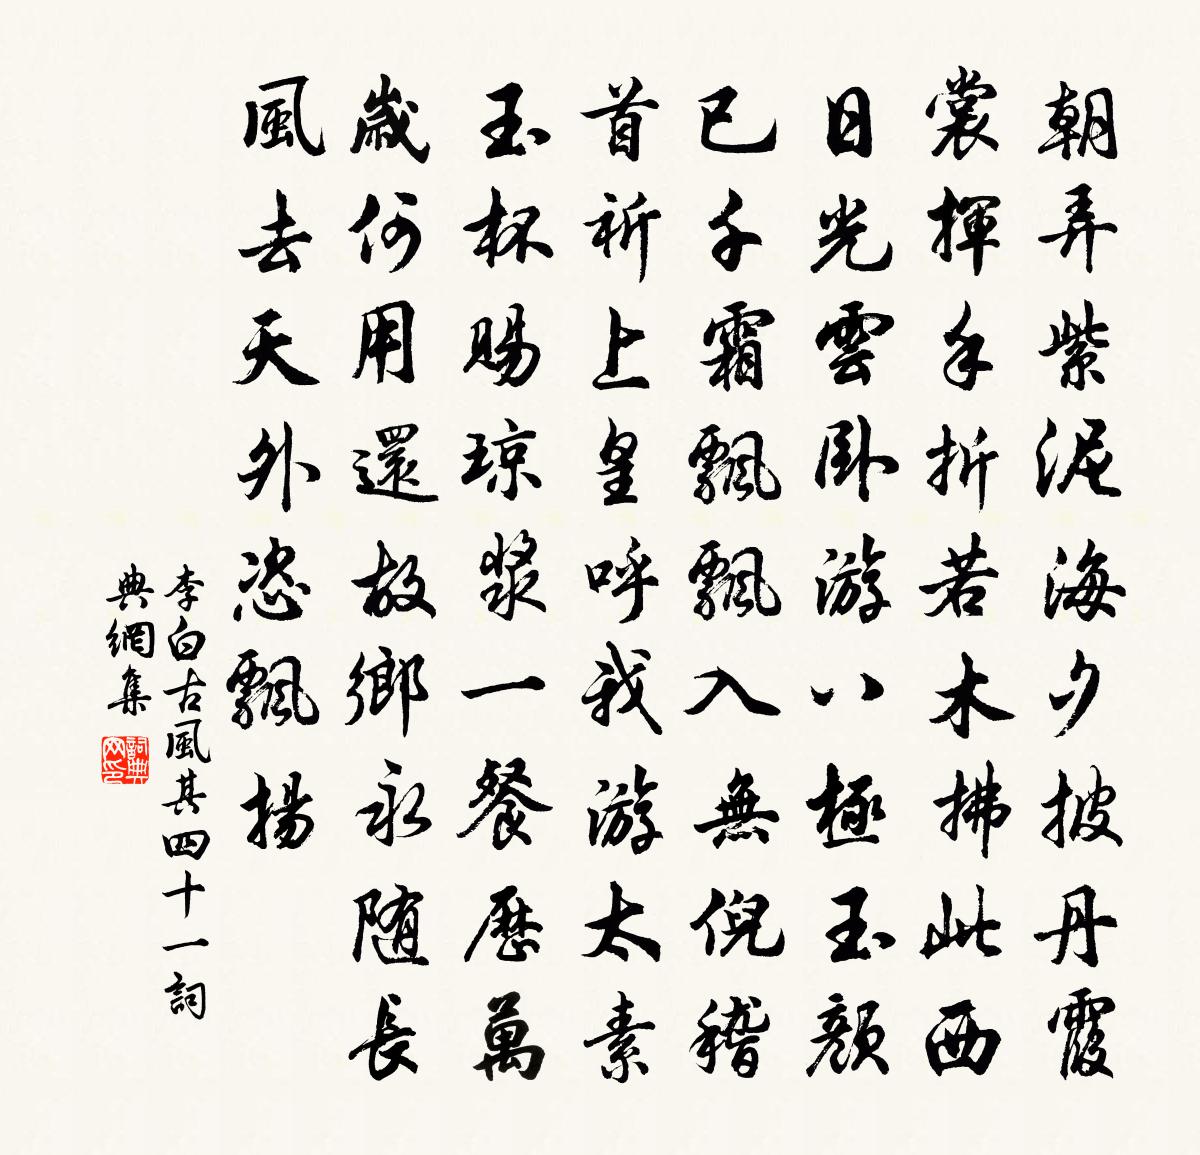 朝弄紫泥海夕披丹霞
裳揮手折若木拂此西
日光雲臥游八極玉顏
已千霜飄飄入無倪稽
首祈上皇呼我游太素
玉杯賜瓊漿一餐歷萬
歲何用還故鄉永隨長
風去天外恣飄揚
李白古風其四十一詞
典網集
詞典
網印